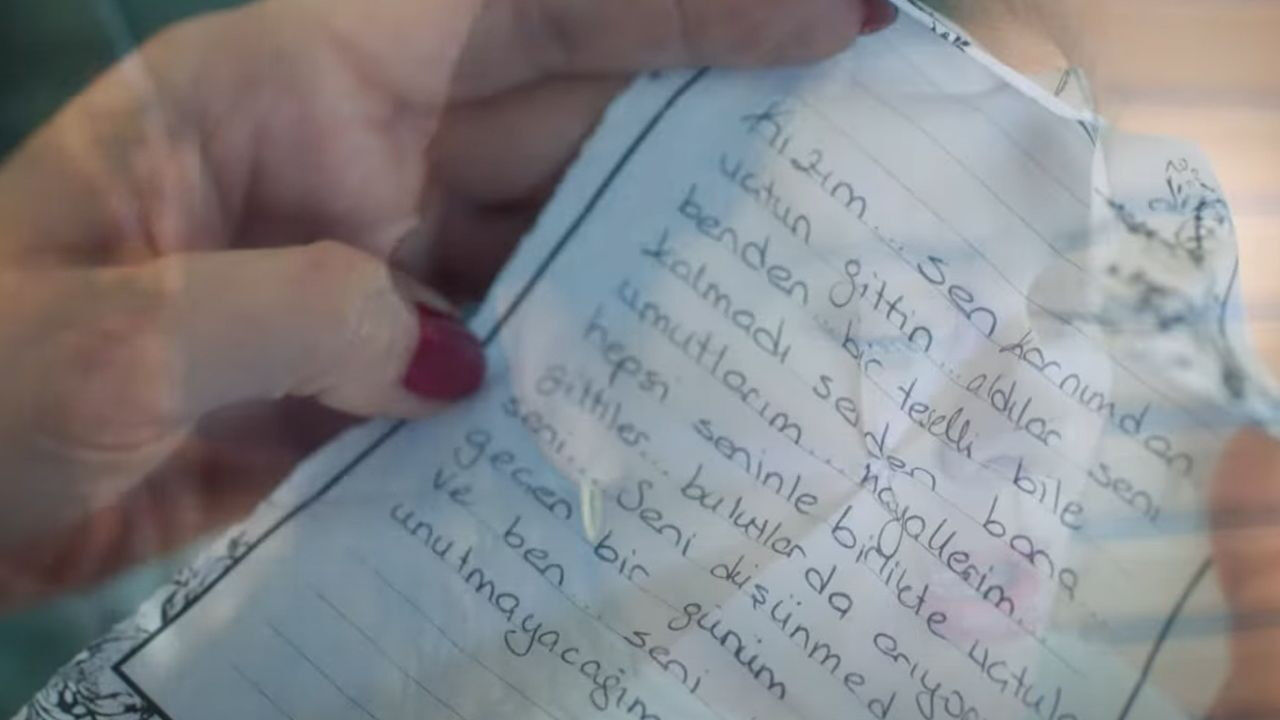 Kızım... Sen karnımdan
uçtun gittin... aldılar seni
benden... bir teselli bile
kalmadı senden bana...
umutlarım... hayallerim..
hepsi seninle birlikte uçtula
gittiler... bulutlar da eriyo
seni... Seni düşünmed
geçen bir günüm
ve ben seni
unutmayacağım